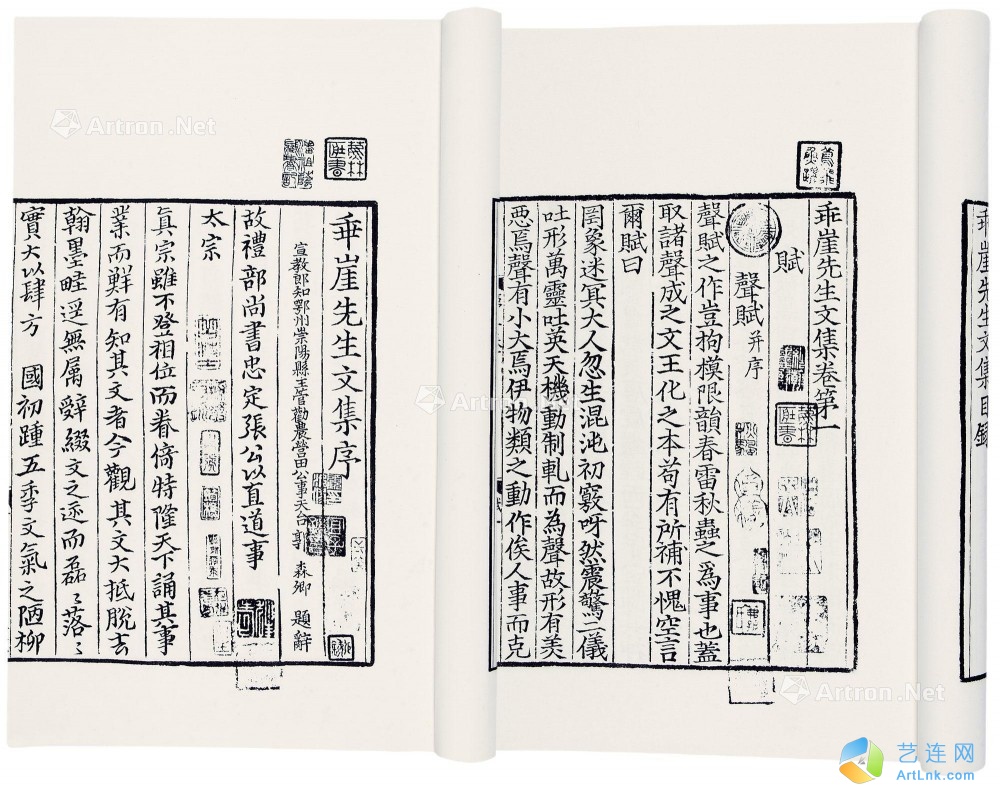 乖崖先生文集目録
乖崖先生文集卷第一
賦
聲賦 并序
聲賦之作豈拘模限韻春雷秋蟲之爲事也蓋
取諸聲成之文王化之本苟有所補不愧空言
爾賦曰
罔象迷冥大人忽生混沌初竅呀然震驚二儀
吐形萬靈吐英天機動制軋而為聲故形有美
惡焉聲有小大焉伊物類之動作俟人事而克
乖崖先生文集序
宣教郎知鄂州崇陽縣主管勸農營田公事天台郭 森卿 題辭
故禮部尚書忠定張公以直道事
太宗
真宗雖不登相位而眷倚特隆天下誦其事
業而鮮有知其文者今觀其文大抵脫去
翰墨畦逕無屬辭綴文之迹而磊〻落〻
實大以肆方 國初踵五季文氣之陋柳
Artron.Net
Artron.Net
Artron.Net
Artron.Net
艺连网
ArtLnk.com